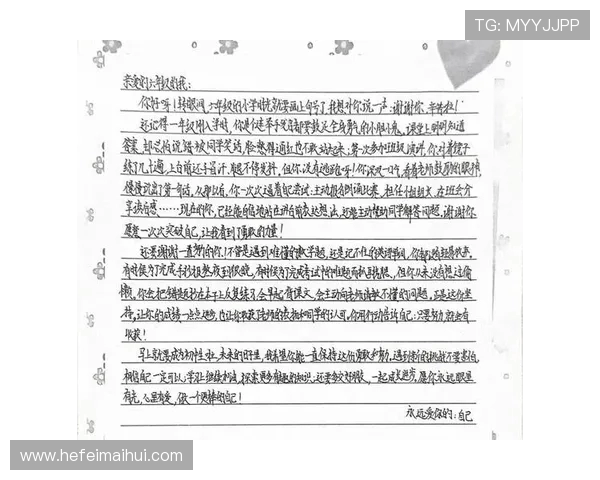 TG: MYYJJPP
亲爱的六年级的我：
你好呀！转眼间，六年级的小学时光就要画上句号了，我想对你说一声：谢谢你，辛苦啦！
还记得一年级刚入学时，你是个连举手发言都要鼓足全身勇气的小胆小鬼，课堂上明明知道
答案，却总怕说错被同学笑话，脸憋得通红也不敢站起来；第一次参加班级演讲，你对着镜子
练了几十遍，上台前还手冒汗，腿不停发抖，但你没有退缩呀！你深吸一口气，看着老师鼓励的眼神，
慢慢说出了第一句话，从那以后，你一次次逼着自己尝试：主动报名朗诵比赛，担任小组组长，在班会分
享读后感……现在的你，已经能自信地站在讲台前表达想法，还能主动帮助同学解答问题，谢谢你
愿意一次次突破自己，让我看到了勇敢的力量！
还要谢谢一直努力的你！不管是遇到难懂的数学题，还是记不住的英语单词，你都没轻易放弃。
有时候为了完成手抄报熬夜到很晚，有时候为了完成考试中的难题而抓耳挠腮，但你从来没有想过偷
懒，你会把错题抄在本子上反复练习，会早起背课文，会主动向老师请教不懂的问题，正是这份坚
持，让你的成绩一点点进步，也让你收获了老师的表扬和同学的认可，你用行动告诉自己：只要努力，就会有
收获！
早上就要成为初中生啦，未来的日子里，我希望你能一直保持这份勇敢和努力，遇到新的挑战不要害怕，
相信自己一定可以；学习上继续加油，探索更多有趣的知识；还要多交好朋友，一起成长进步。愿你永远眼里
有光，心里有爱，做一个更棒的自己！
永远爱你的：自己
www.hefeimaihui.com